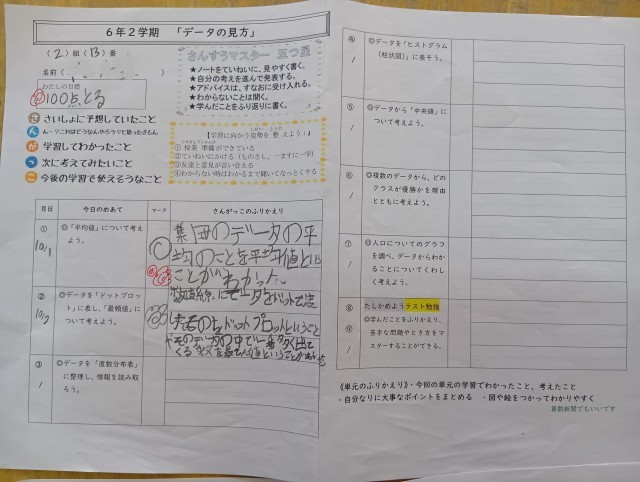 6年2学期 「データの見方」
(2)組(13)番
名前(
わたしの目標
100点とる
さいしょに予想していたこと
ん~?これはどうなんやろう?と思ったもん
学習してわかったこと
次に考えてみたいこと
今後の学習で使えそうなこと
さんすうマスター 五つ星
★ノートをていねいに、見やすく書く。
★自分の考えを進んで発表する。
★アドバイスは、すなおに受け入れる。
★わからないことは聞く。
★学んだことをふり返りに書く。
【学習に向かう姿勢を整えよう!】
①授業準備ができている
②ていねいにかける(ものさし、一ますに一字)
③友達と意見が言い合える
④わからない時はわかるまで聞いてなっとくする
月日 今日のめあて マーク さんがっこのふりかえり
① ◎「平均値」について考えよう。
10/1
集団のデータの平
均のことを平均値とい
ことがわかった。
② ◎データを「ドットプロット」に表し、「最頻値」について考えよう。
10/2
数直線にデータをドットで表
したものをドットプロットということ
やそのデータの中で一番多く出て
くる
③ ◎データを「度数分布表」に整理し、情報を読み取ろう。
/
④ ◎データを「ヒストグラム(柱状図)」に表そう。
/
⑤ ◎データから「中央値」について考えよう。
/
⑥ ◎複数のデータから、どのクラスが優勝かを理由とともに考えよう。
/
⑦ ◎人口についてのグラフを調べ、データからわかることについてくわしく考えよう。
/
⑧ たしかめよう テスト勉強
⑨ ◎学んだことをふりかえり、苦手な問題やとき方をマスターすることができる。
/
《単元のふりかえり》・今回の単元の学習でわかったこと、考えたこと
・自分なりに大事なポイントをまとめる ・図や絵をつかってわかりやすく
算数新聞でもいいです